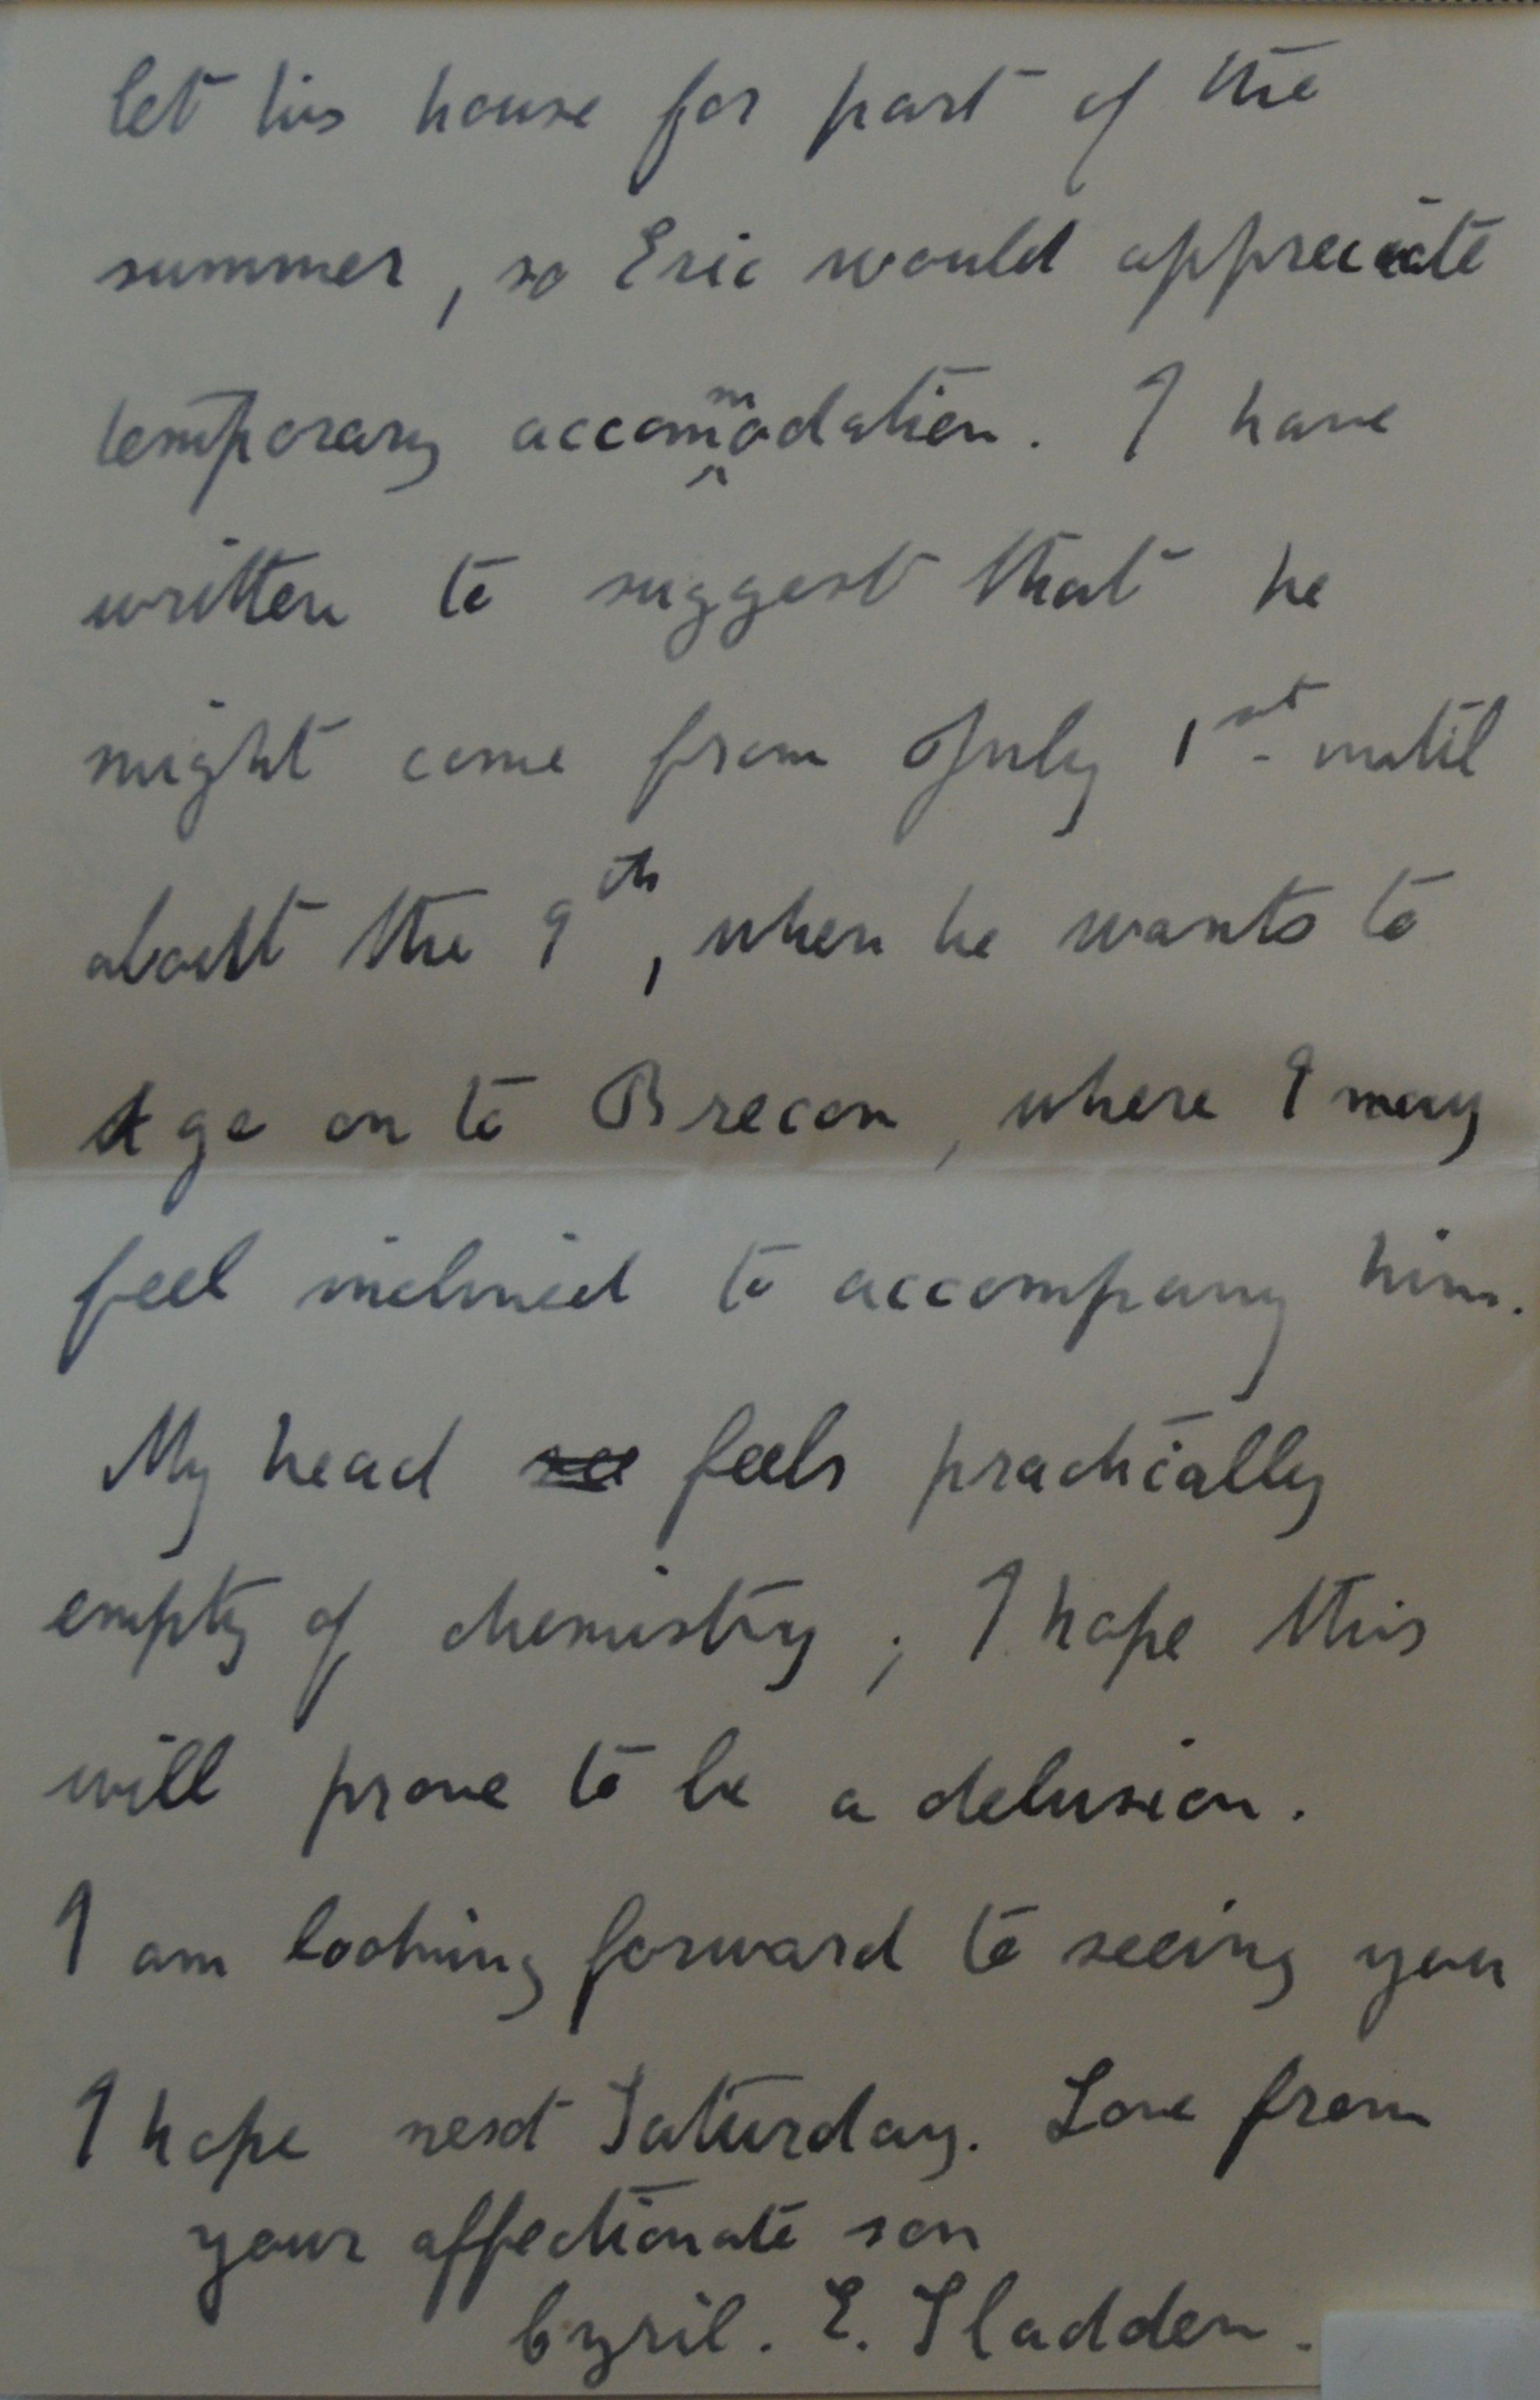 let his house for part of the
summer, so Eric would appreciate
temporary accommodation. I have
written to suggest that he
might come from July 1st until
about the 9th, when he wants to
go on to Brecon, where I may
feel inclined to accompany him.
My head feels practically
empty of chemistry; I hope this
will prove to be a delusion.
I am looking forward to seeing you
I hope next Saturday. Love from
your affectionate son
Cyril. E. Sladden.